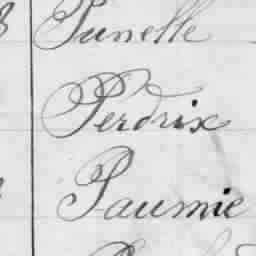 Punelle
Perdrix
Paumie